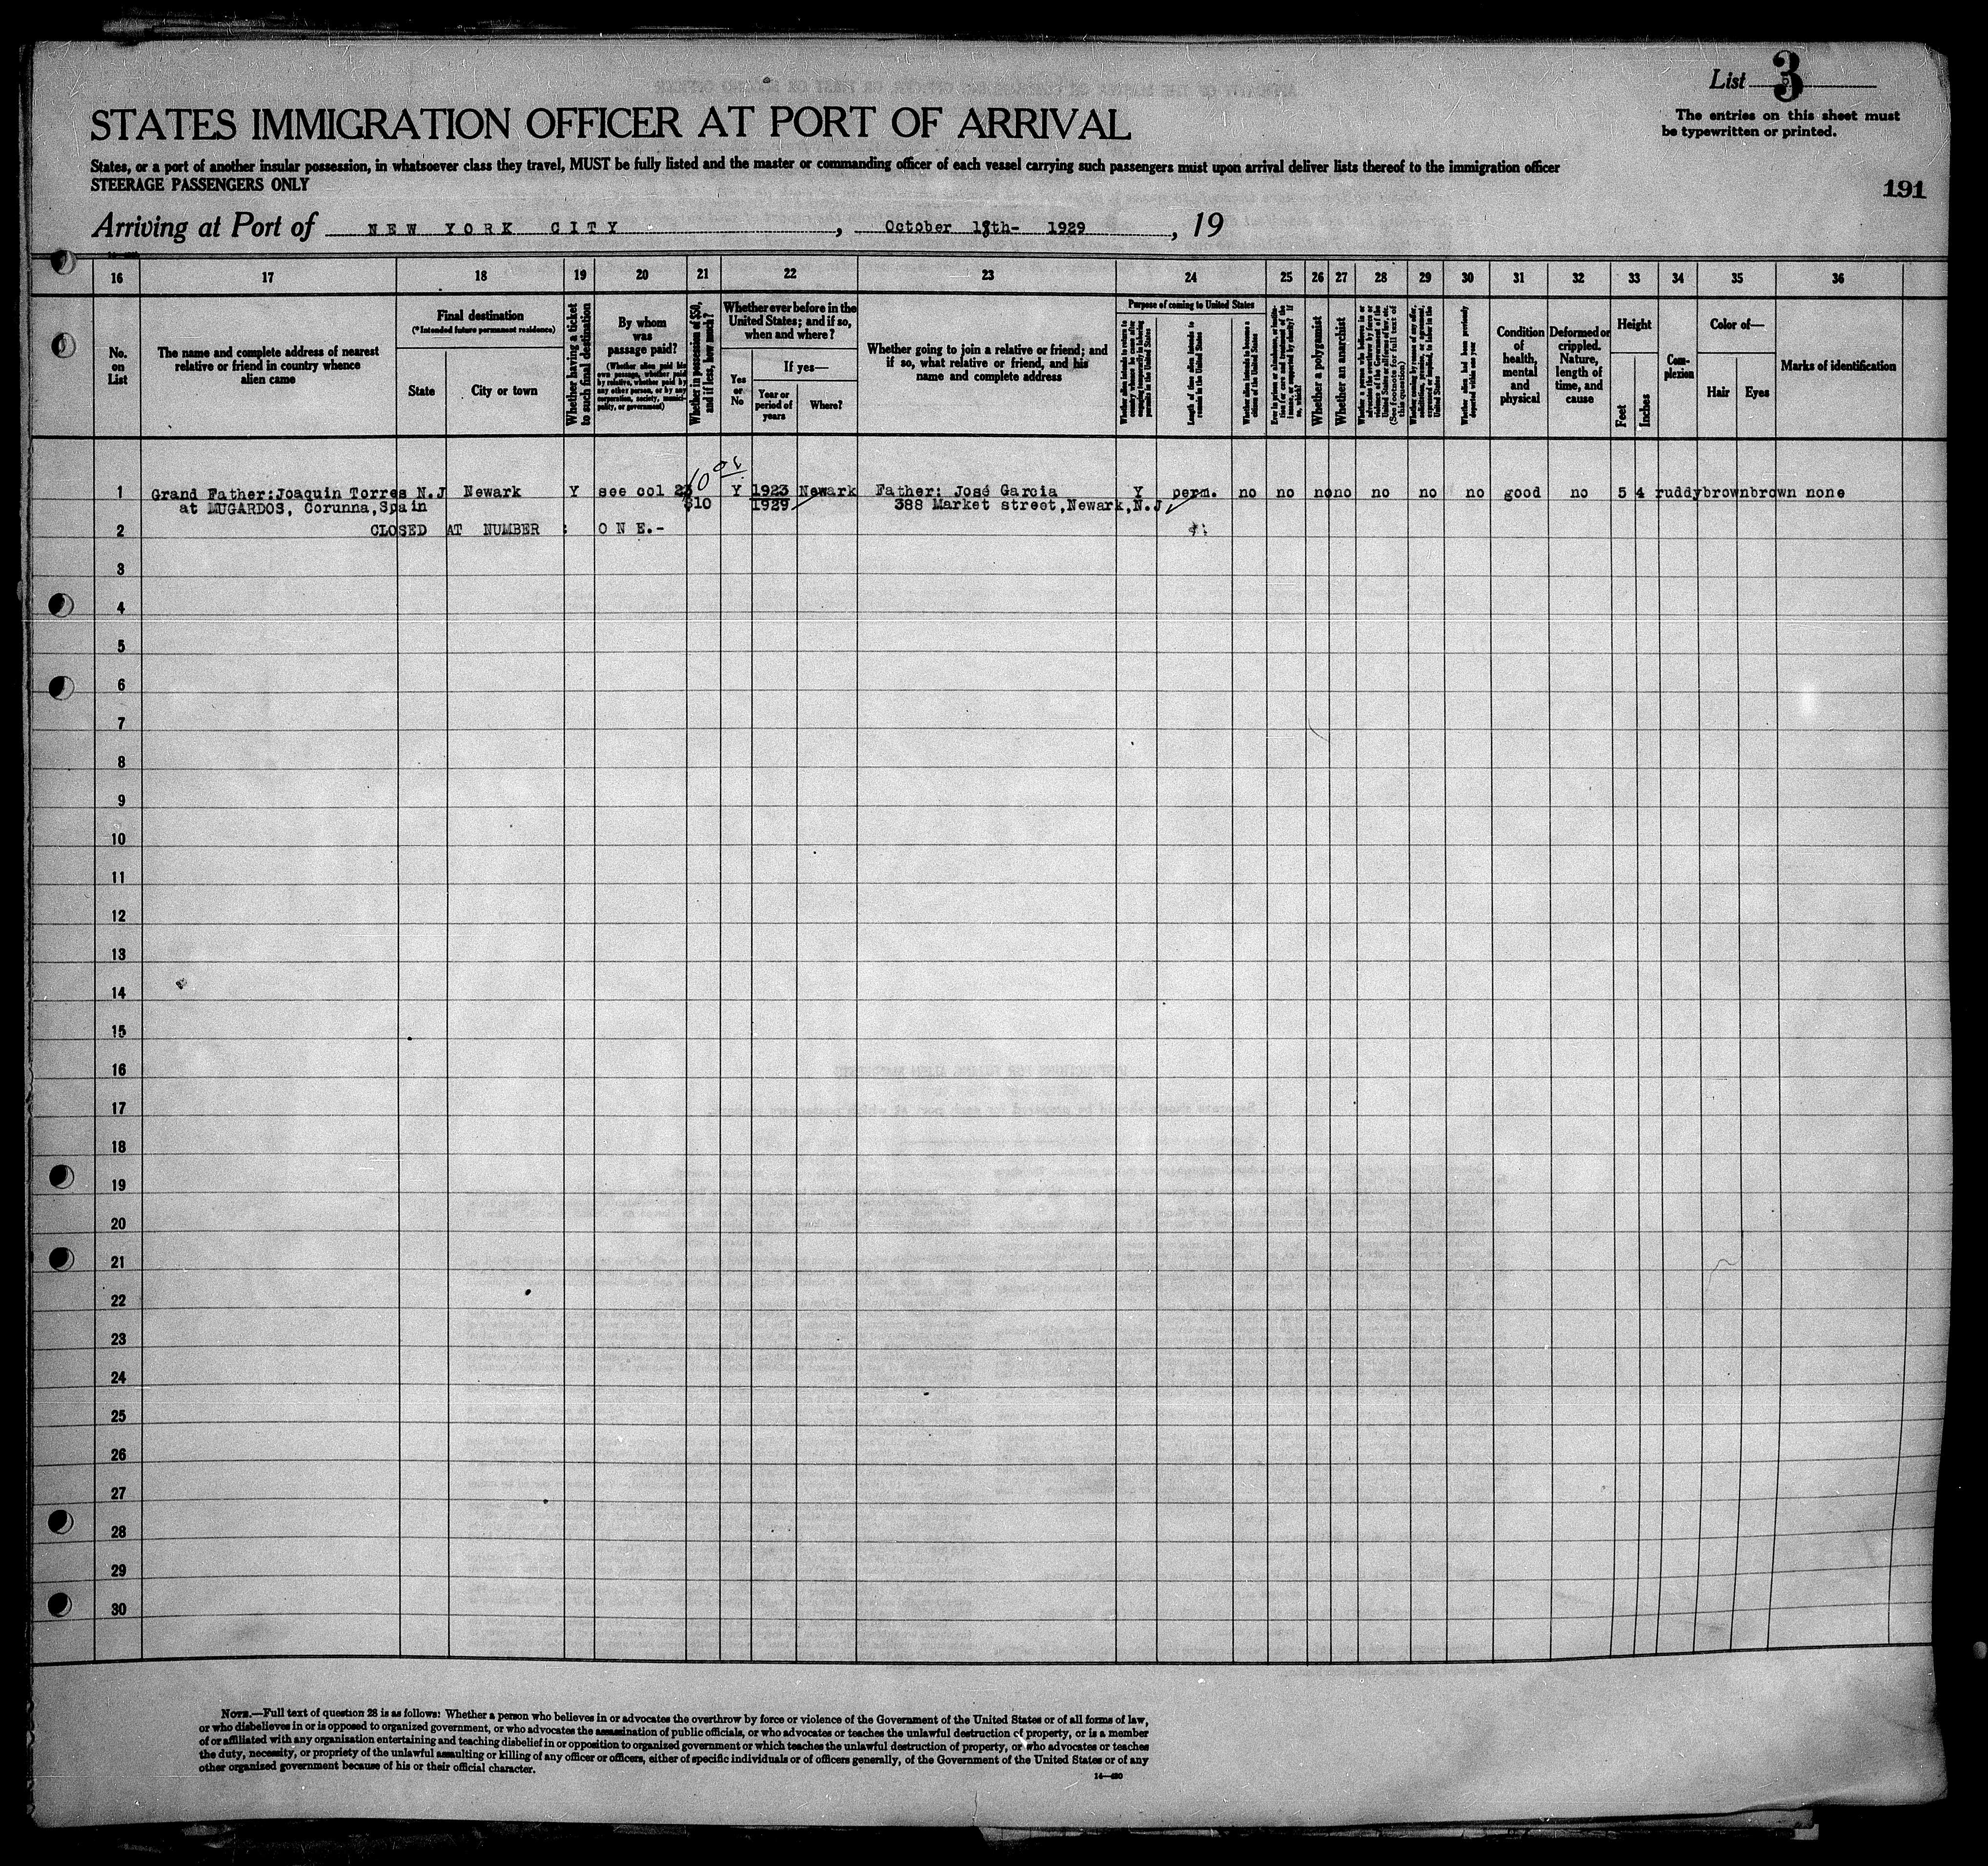 List 3
The entries on this sheet must
be typewritten or printed.
STATES IMMIGRATION OFFICER AT PORT OF ARRIVAL
States, or a port of another insular possession, in whatsoever class they travel, MUST be fully listed and the master or commanding officer of each vessel carrying such passengers must upon arrival deliver lists thereof to the immigration officer
STEERAGE PASSENGERS ONLY
191
Arriving at Port of NEW YORK CITY, October 18th- 1929, 19
16 17 18 19 20 21 22 23 24 25 26 27 28 29 30 31 32 33 34 35 36
No. on List
The name and complete address of nearest
relative or friend in country whence
alien came
Final destination
(*Intended future permanent residence)
State
City or town
Whether having a ticket
to such final destination
By whom
was
passage paid?
(Whether alien paid his
own passage, whether paid
by relative, whether paid by
any other person, or by any
corporation, society, munici-
pality, or government)
Whether in possession of $50,
and if less, how much?
Whether ever before in the
United States; and if so,
when and where?
Yes
or
No
If yes—
Year or
period of
years
Where?
Whether going to join a relative or friend; and
if so, what relative or friend, and his
name and complete address
Purpose of coming to United States
Whether alien intends to return to
country whence he came after
engaging temporarily in laboring
pursuits in the United States
Length of time alien intends to
remain in the United States
Whether alien intends to become a
citizen of the United States
Whether a polygamist
Whether an anarchist
Whether alien had been previously
deported within one year
Condition
of
health,
mental
and
physical
Deformed or
crippled.
Nature,
length of
time, and
cause
Height
Feet
Inches
Com-
plexion
Color of—
Hair
Eyes
Marks of identification
1 Grand Father:Joaquin Torres N.J Newark Y see col 23 Y 1923 Newark Father: José Garcia Y perm. no no no no no no no good no 5 4 ruddy brown brown none
at MUGARDOS, Corunna, Spain $10 1929 388 Market street, Newark, N.J
2 CLOSED AT NUMBER : O N E.-
3
4
5
6
7
8
9
10
11
12
13
14
15
16
17
18
19
20
21
22
23
24
25
26
27
28
29
30
NOTE.—Full text of question 28 is as follows: Whether a person who believes in or advocates the overthrow by force or violence of the Government of the United States or of all forms of law,
or who disbelieves in or is opposed to organized government, or who advocates the assassination of public officials, or who advocates or teaches the unlawful destruction of property, or is a member
of or affiliated with any organization entertaining and teaching disbelief in or opposition to organized government or which teaches the unlawful destruction of property, or who advocates or teaches
the duty, necessity, or propriety of the unlawful assaulting or killing of any officer or officers, either of specific individuals or of officers generally, of the Government of the United States or of any
other organized government because of his or their official character.